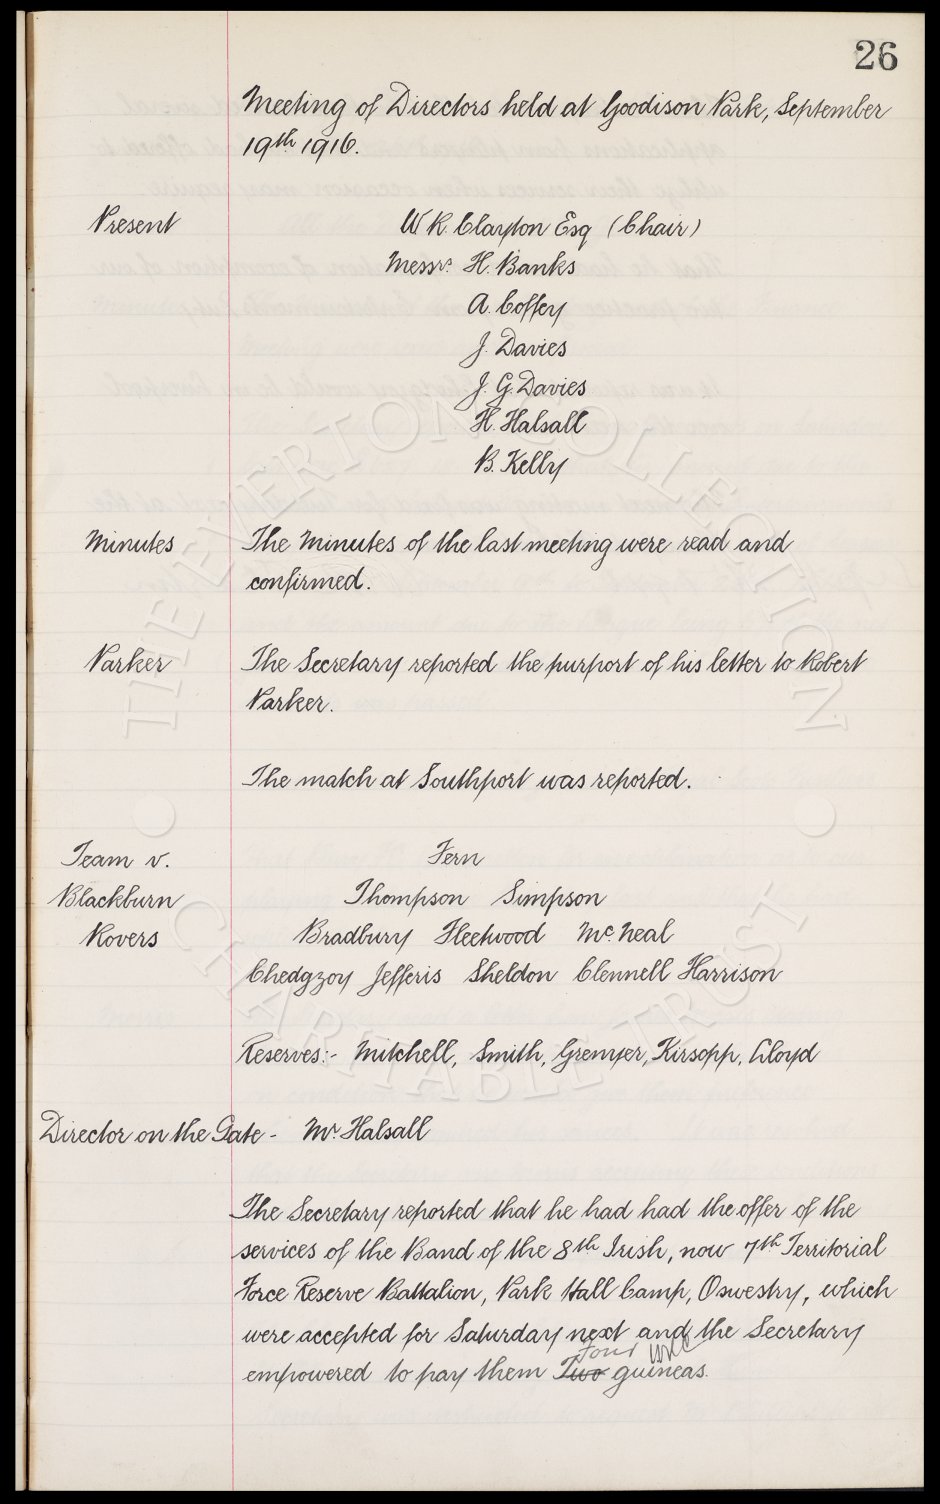 26
Meeting of Directors held at Goodison Park, September
19th 1916.
Present
W. R. Clayton Esq (Chair)
Messrs. H. Banks
A. Coffey
J. Davies
J. G. Davies
H. Halsall
B. Kelly
Minutes
The Minutes of the last meeting were read and
confirmed.
Parker
The Secretary reported the purport of his letter to Robert
Parker.
The match at Southport was reported.
Team v.
Fern
Blackburn
Thompson Simpson
Rovers
Bradbury Fleetwood McNeal
Chedgzoy Jefferis Sheldon Clennell Harrison
Reserves:- Mitchell, Smith, Grenyer, Kirsopp, Lloyd
Director on the Gate - Mr. Halsall
The Secretary reported that he had had the offer of the
services of the Band of the 8th Irish, now 7th Territorial
Force Reserve Battalion, Park Hall Camp, Oswestry, which
were accepted for Saturday next and the Secretary
Four WRC
empowered to pay them Two guineas.
THE EVERTON COLLECTION
CHARITABLE TRUST